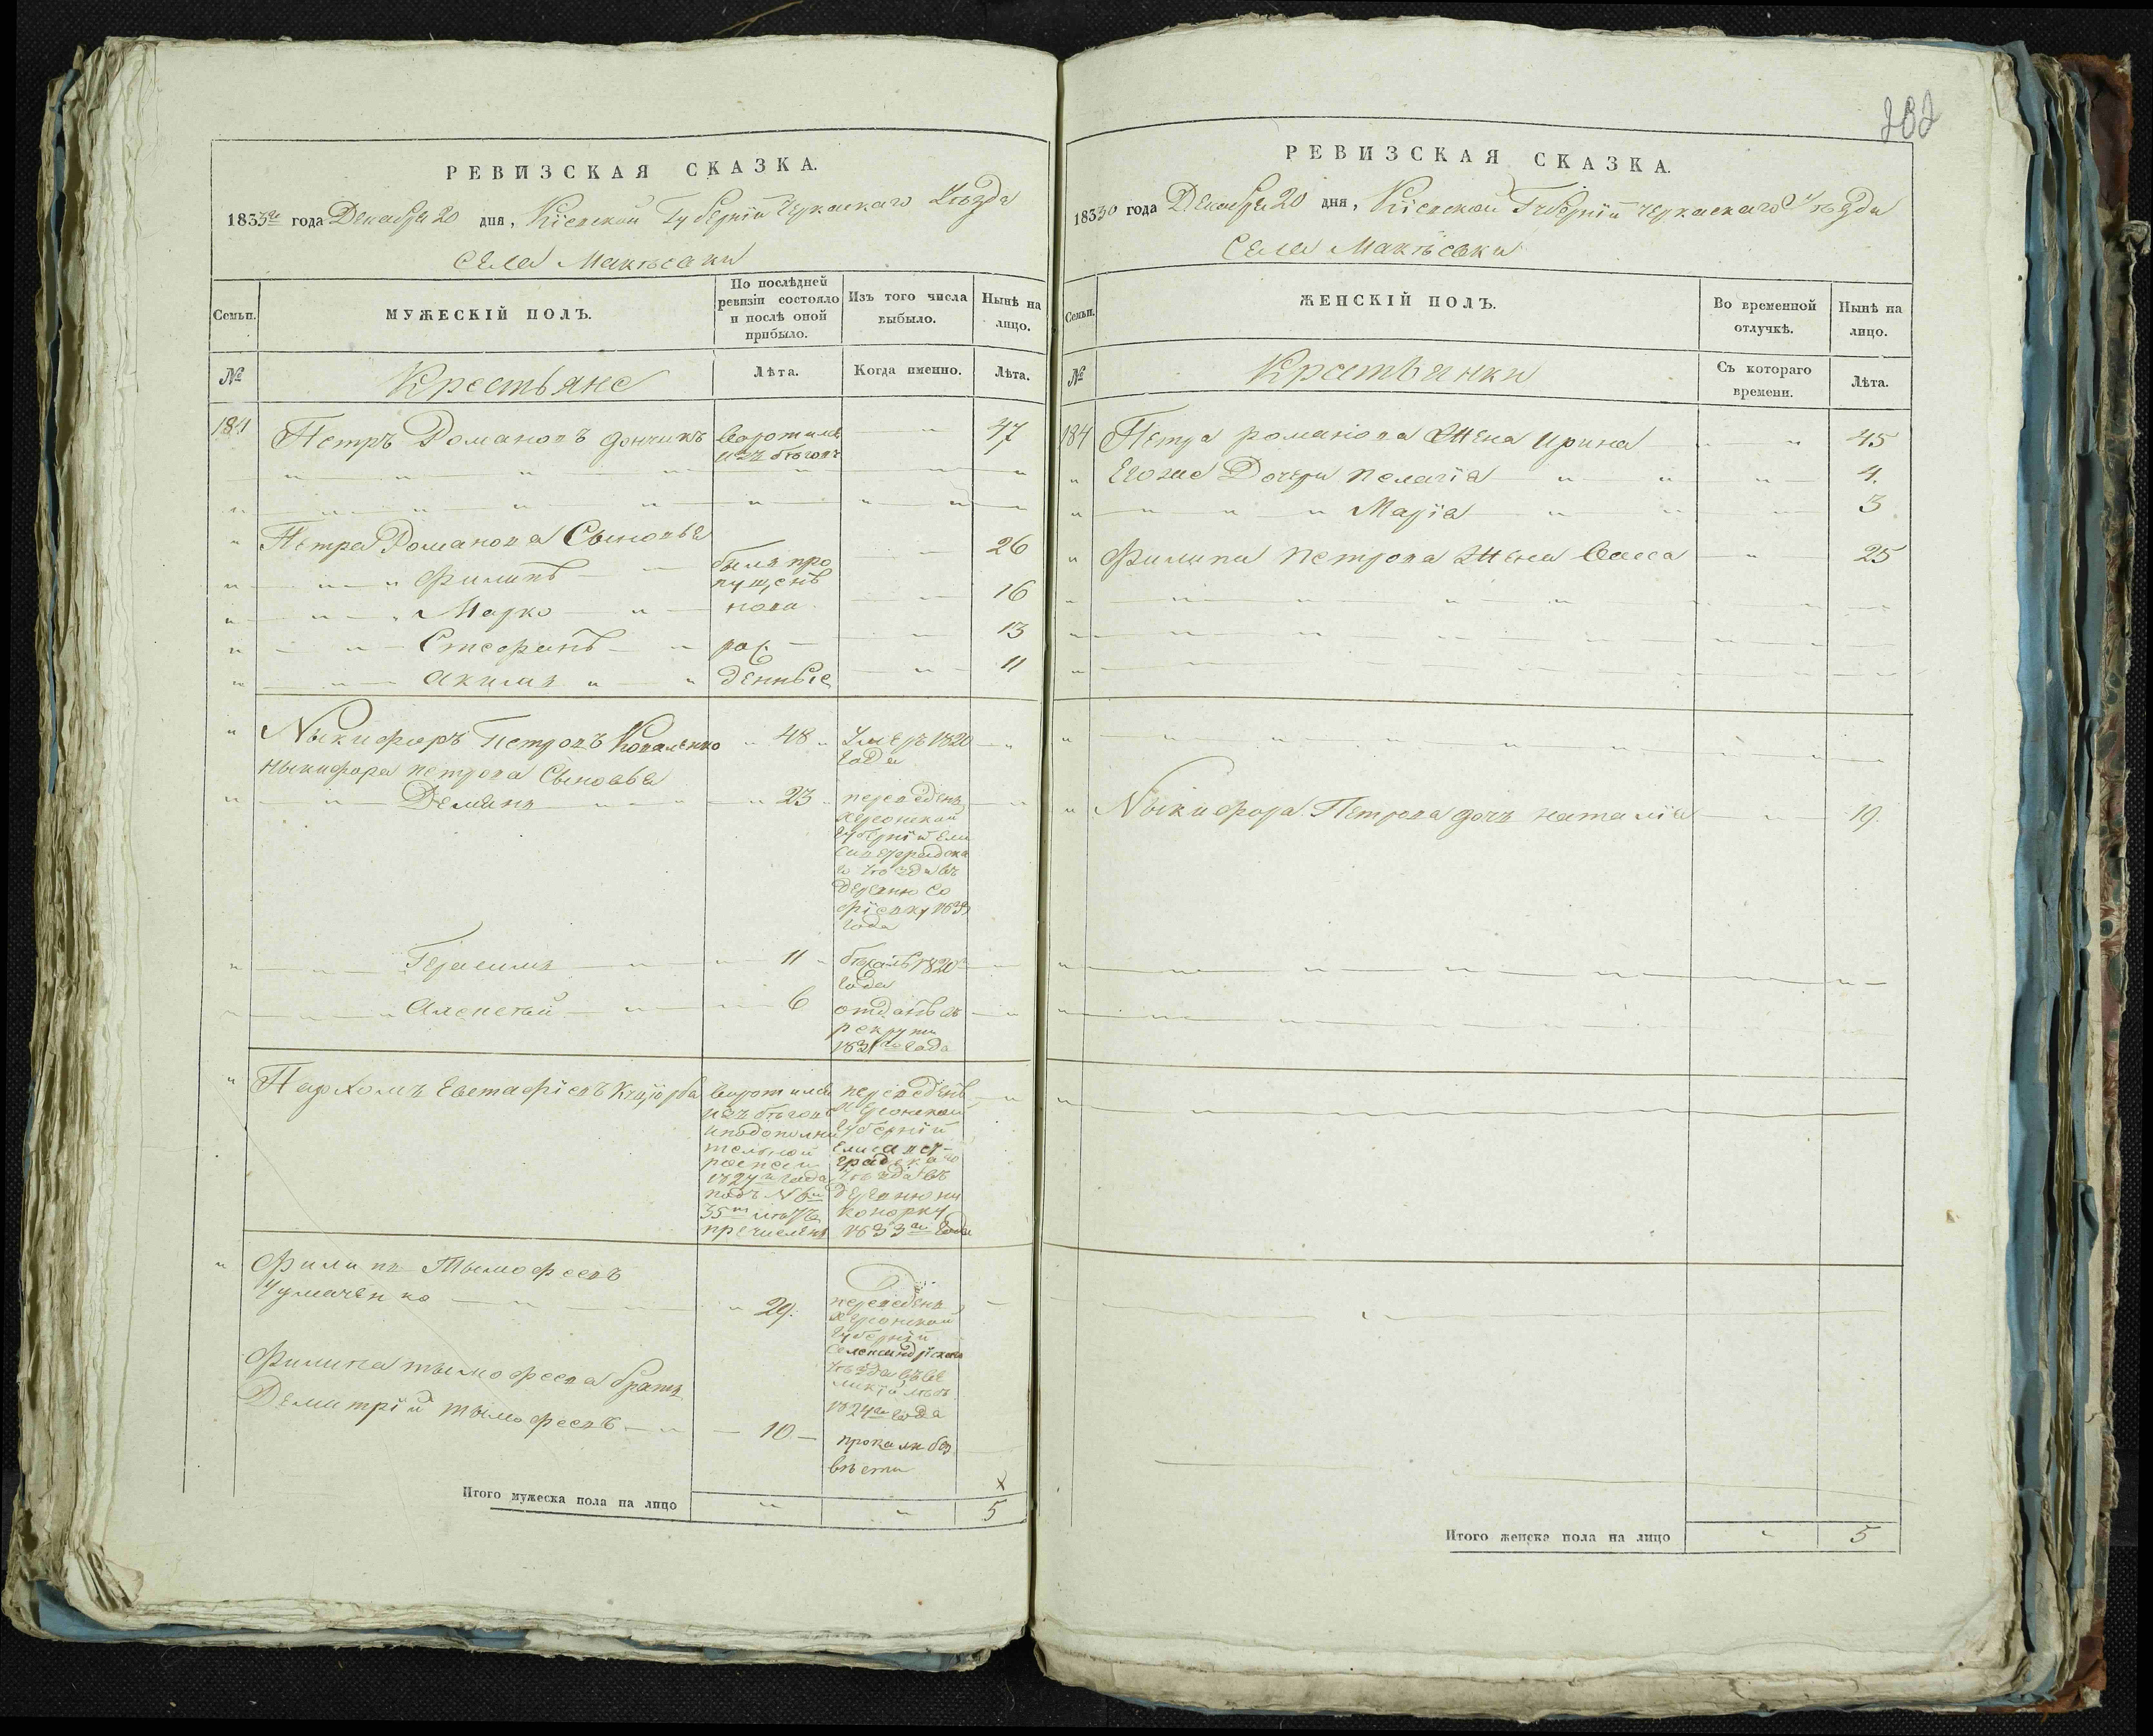 РЕВИЗСКАЯ СКАЗКА.
1833го года Декабря 20 дня, Кіевской Губерніи Черкаскаго Уѣзда
Села Макѣевки
Семьи.
МУЖЕСКІЙ ПОЛЪ.
По послѣдней
ревизіи состояло
и послѣ оной
прибыло.
Изъ того числа
выбыло.
Нынѣ на
лицо.
№
Крестьяне
Лѣта.
Когда именно.
Лѣта.
184 Петръ Романовъ Дончикъ воротилсь 47
изъ бѣговъ
Петра Романова Сыновья
Филипъ были про 26
пущенъ
Марко нова 16
Стефанъ рож 13
Акимъ денные 11
Никифоръ Петровъ Коваленко 48 Умеръ 1820
года
Никифора Петрова Сыновья
Демянъ 23 переведенъ
Херсонской
Губерніи Ели
саветградска
го уѣзда въ
деревню Со
фіевку 1833
года
Герасимъ 11 бѣжалъ 1820
года
Алексѣй 6 отданъ въ
рекруты
1831го года
Пархомъ Евстафіевъ воротилсь переведенъ
изъ бѣговъ Херсонской
и по дополни Губерніи
тельной Елисавет-
градскаго
1827 года уѣзда въ
подъ № 6м деревню Ни
конорку
пречисленъ 1833го года
Филипъ Тымофеевъ
Чумаченко 29. переведенъ
Херсонской
Губерніи
Александрійскаго
уѣзда
1824го года
Филипа Тымофеева братъ
Демитрій Тымофеевъ 10 пропалъ без
вѣсти
Итого мужеска пола на лицо 5
282
РЕВИЗСКАЯ СКАЗКА.
1833го года Декабря 20 дня, Кіевской Губерніи Черкаскаго Уѣзда
Села Макѣевки
Семьи.
ЖЕНСКІЙ ПОЛЪ.
Во временной
отлучкѣ.
Нынѣ на
лицо.
№
Крестьянки
Съ котораго
времени.
Лѣта.
184 Петра Романова Жена Ирина 45
Его же Дочери Пелагія 4.
Марія 3
Филипа Петрова Жена Васса 25
Никифора Петрова дочь Наталія 19.
Итого женска пола на лицо 5